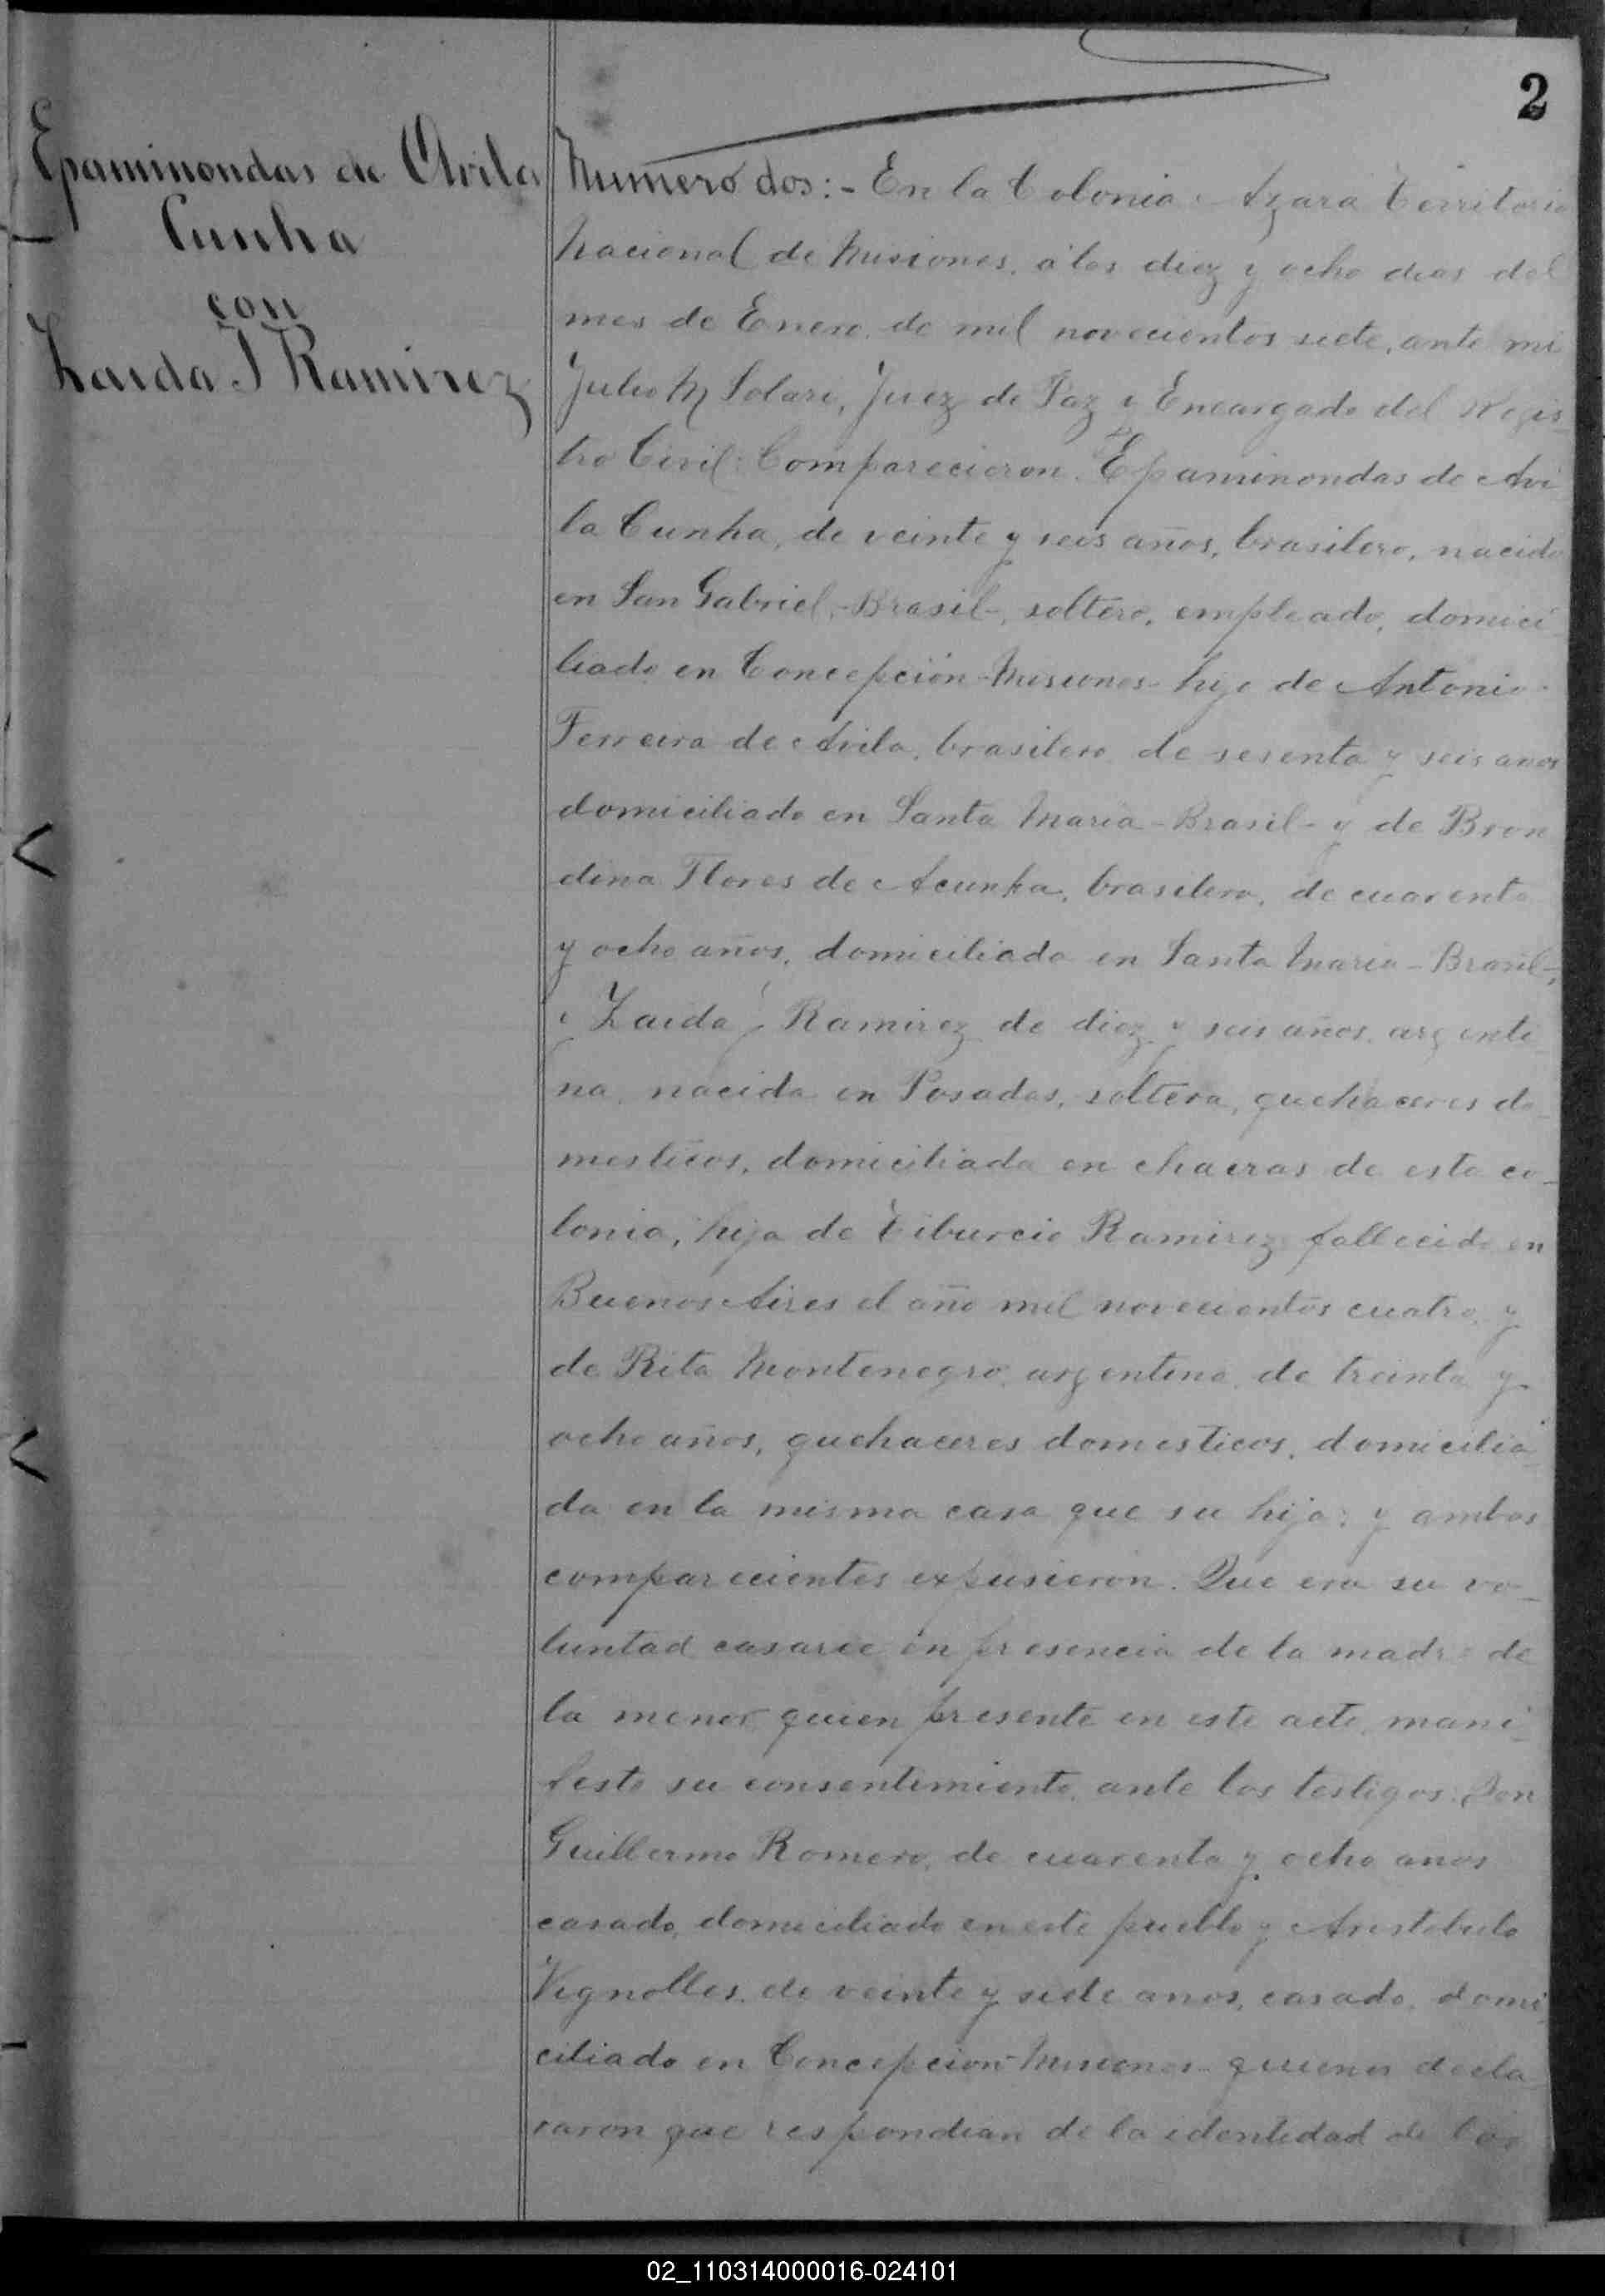 2
Epaminondas de Avila
Cunha
con
Zaida J Ramirez
Numero dos:- En la Colonia Azara Territorio
Nacional de Misiones, á los diez y ocho dias del
mes de Enero de mil novecientos siete, ante mi
Julio M Solari, Juez de Paz y Encargado del Regis
tro Civil: Comparecieron Epaminondas de Avi
la Cunha, de veinte y seis años, brasilero, nacido
en San Gabriel,-Brasil-, soltero, empleado, domici
liado en Concepción-Misiones-hijo de Antonio
Ferreira de Avila, brasilero de sesenta y seis anos
domiciliado en Santa Maria-Brasil-y de Bron
dina Flores de Acunha, brasilera, de cuarenta
y ocho años, domiciliada en Santa Maria-Brasil-,
i Zaida J Ramirez de diez y seis años, argenti
na, nacida en Posadas, soltera, quehaceres do_
mesticos, domiciliada en chacras de esta co_
lonia, hija de Tiburcio Ramirez fallecido en
Buenos Aires el año mil novecientos cuatro, y
de Rita Montenegro, argentina, de treinta y
ocho años, quehaceres domesticos, domicilia_
da en la misma casa que su hija; y ambos
comparecientes expusieron. Que era su vo_
luntad casarse en presencia de la madre de
la menor, quien presente en este acto, mani_
festo su consentimiento, ante los testigos: Don
Guillermo Romero, de cuarenta y ocho anos
casado, domiciliado en este pueblo y Aristobulo
Vignolles, de veinte y siete anos, casado, domi_
ciliado en Concepcion-Misiones-quienes decla
raron que respondian de la identidad de los
02_110314000016-024101